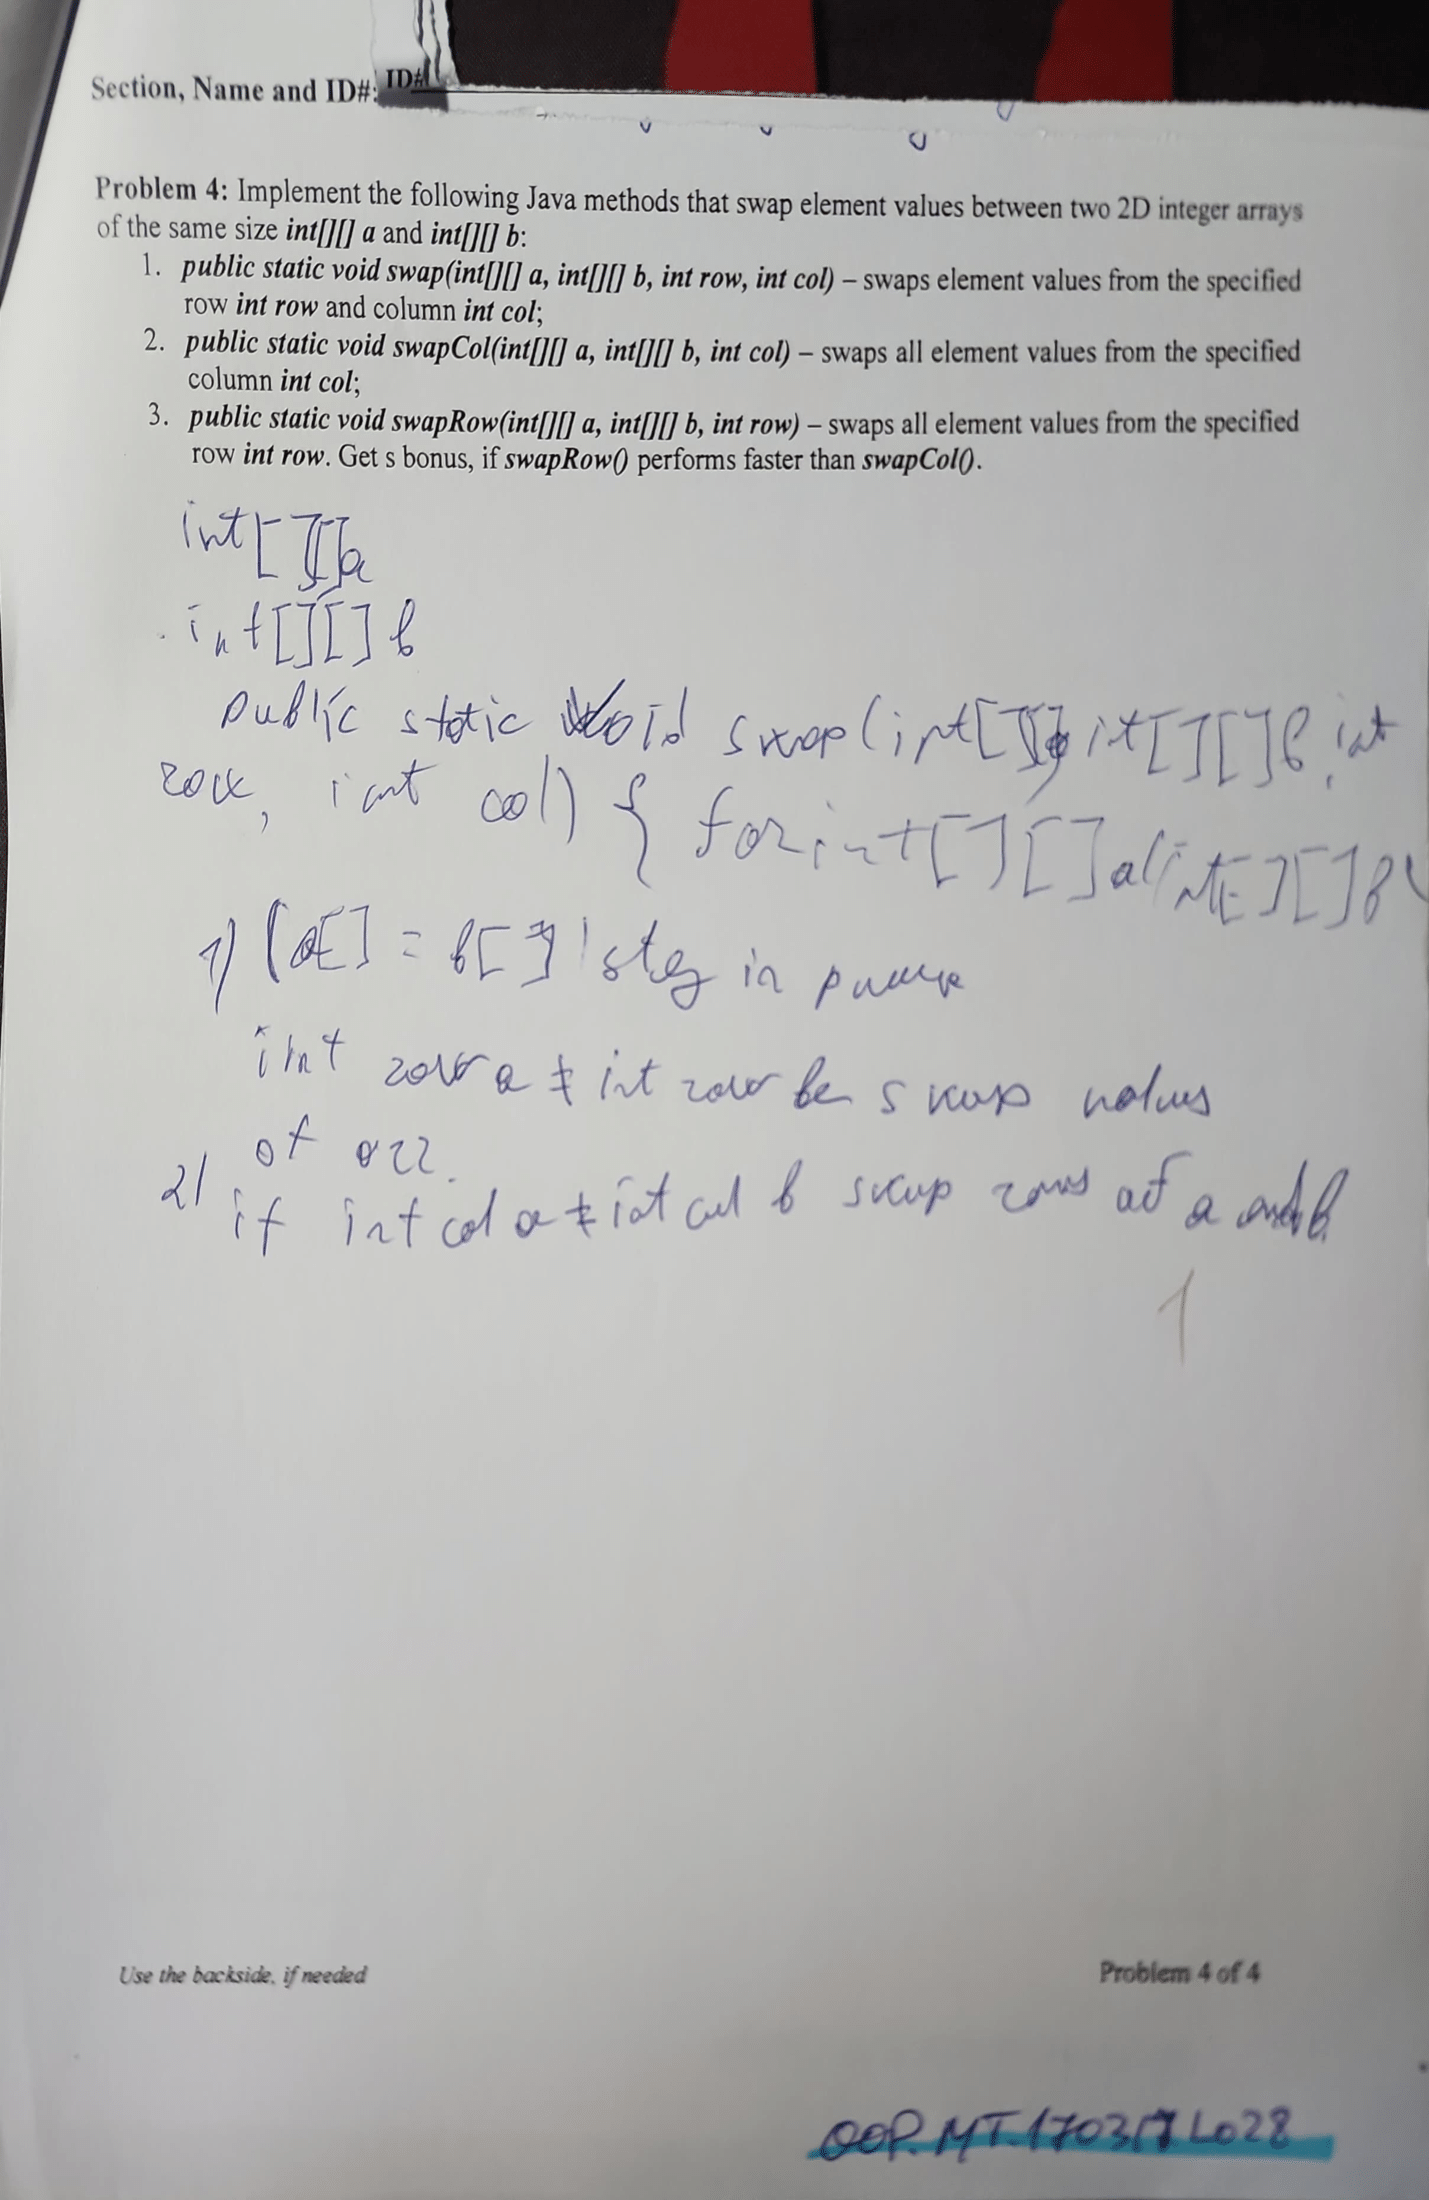 Section, Name and ID#: ID#
Problem 4: Implement the following Java methods that swap element values between two 2D integer arrays
of the same size int[][] a and int[][] b:
1. public static void swap(int[][] a, int[][] b, int row, int col) – swaps element values from the specified
row int row and column int col;
2. public static void swapCol(int[][] a, int[][] b, int col) – swaps all element values from the specified
column int col;
3. public static void swapRow(int[][] a, int[][] b, int row) – swaps all element values from the specified
row int row. Get s bonus, if swapRow() performs faster than swapCol().
int[][]a
int[][] b
public static void swap(int[][] it[][]b, int
row, int col) { for int[][]a(int[][]b
1) (a[] = b[] in
int row a ≠ int row b swap values
of arr.
2) if int col a ≠ int col b swap rows of a and b.
1
Use the backside, if needed
Problem 4 of 4
OOP.MT.170317.L028